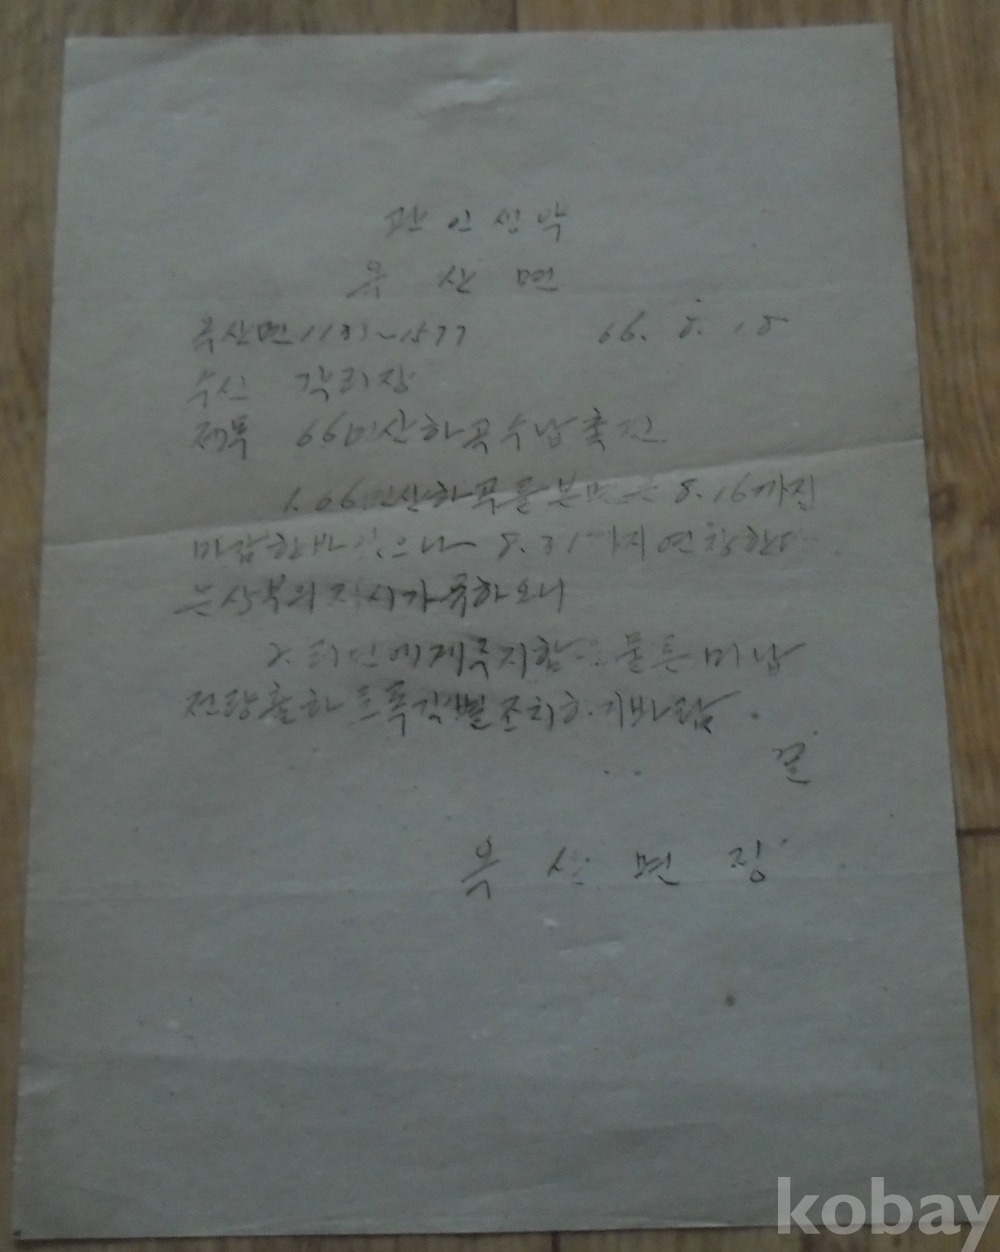 관인생략
옥산면
옥산면1193~1577 66. 8. 18
수신 각리장
제목 66미산하곡수납촉진
1. 66 산하곡을본면은 8.16까지
마감한바 있으나 8.31까지연장한다
는상부의지시가유하오니
2. 리민에게주지함은물론미납
전량출하토록각별조치하기바람.
끝
옥산면장
kobay